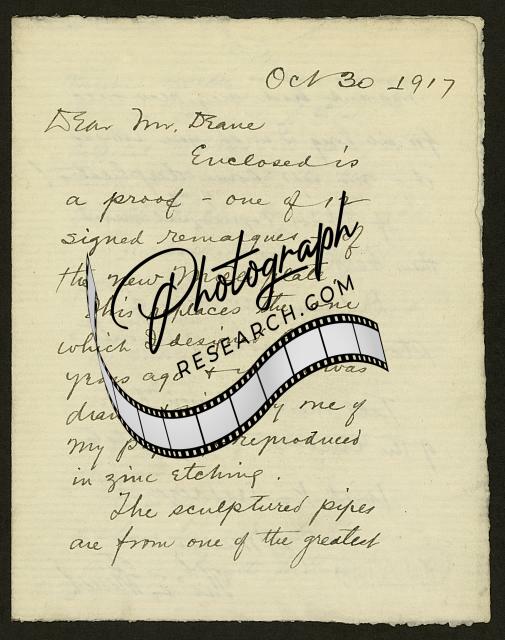 Oct 30 1917
Dear Mr. Deane
Enclosed is
a proof - one of 12
signed remarques of
the new
This replaces the one
which I
years ago & was
by one of
my reproduced
in zinc etching.
The sculptured pipes
are from one of the greatest
Photograph
RESEARCH.COM